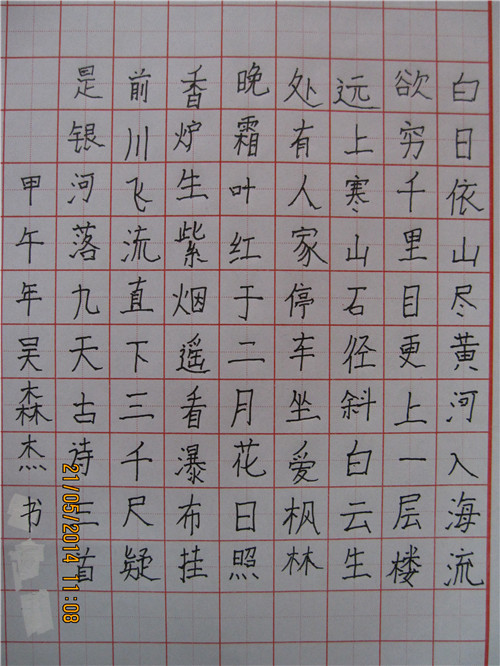 白日依山尽黄河入海流
欲穷千里目更上一层楼
远上寒山石径斜白云生
处有人家停车坐爱枫林
晚霜叶红于二月花日照
香炉生紫烟遥看瀑布挂
前川飞流直下三千尺疑
是银河落九天古诗三首
甲午年吴森杰书
21/05/2014 11:08